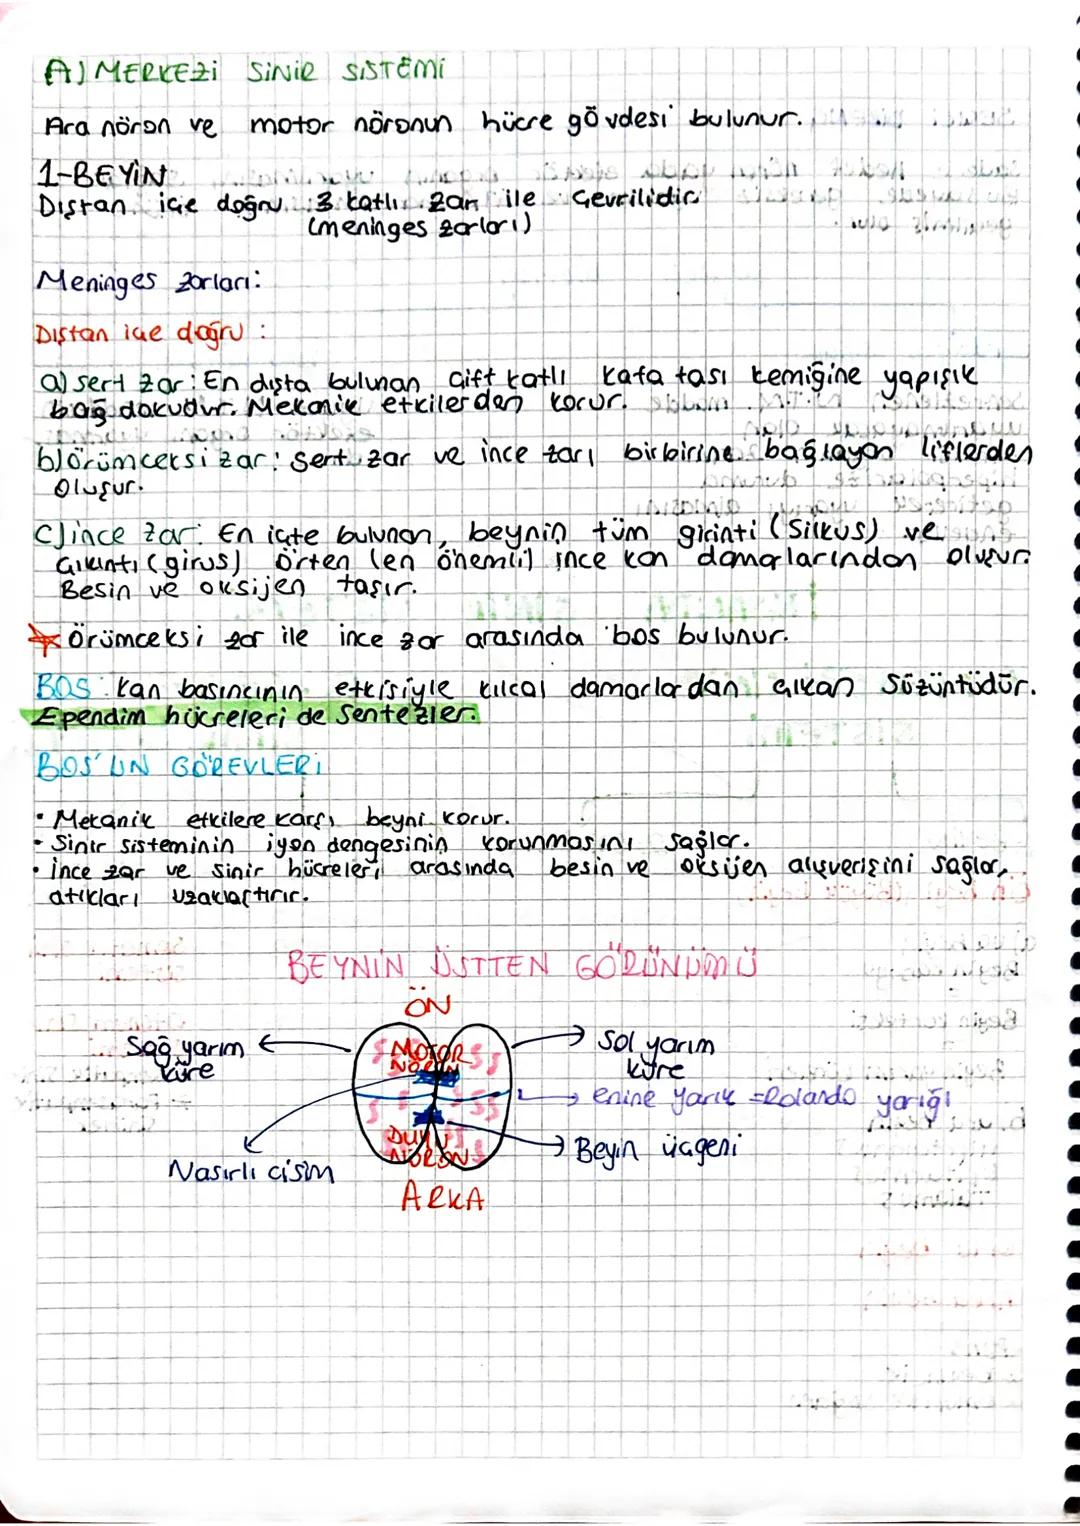 A) MERKEZİ SİNİR SİSTEMİ
Ara nöron ve motor nöronun hücre gövdesi bulunur.
1-BEYİN
Dıştan içe doğru 3 katlı zar ile çevrilidir
(meninges zarları)
Meninges zarları:
Dıştan içe doğru :
a) sert zar: En dışta bulunan çift katlı kafa tası kemiğine yapışık
bağ dokudur. Mekanik etkilerden korur.
b) örümceksi zar: Sert zar ve ince zarı birbirine bağlayan liflerden
oluşur.
c) ince zar: En içte bulunan, beynin tüm girinti (Silkus) ve
çıkıntı (girus) örten (en önemli) ince kan damarlarından oluşur.
Besin ve oksijen taşır.
Örümceksi zar ile ince zar arasında bos bulunur.
BOS: kan basıncının etkisiyle kılcal damarlardan çıkan süzüntüdür.
Ependim hücreleri de Sentezler.
BOS'UN GÖREVLERİ
• Mekanik etkilere karşı beyni korur.
• Sinir sisteminin iyon dengesinin korunmasını sağlar.
• İnce zar ve sinir hücreleri arasında besin ve oksijen alışverişini sağlar,
atıkları uzaklaştırır.
BEYNİN ÜSTTEN GÖRÜNÜMÜ
ÖN
Sağ yarım küre
MOTOR NÖRON
Sol yarım küre
enine yarık = Rolando yarığı
DUYU NÖRON
Beyin üçgeni
Nasırlı cisim
ARKA